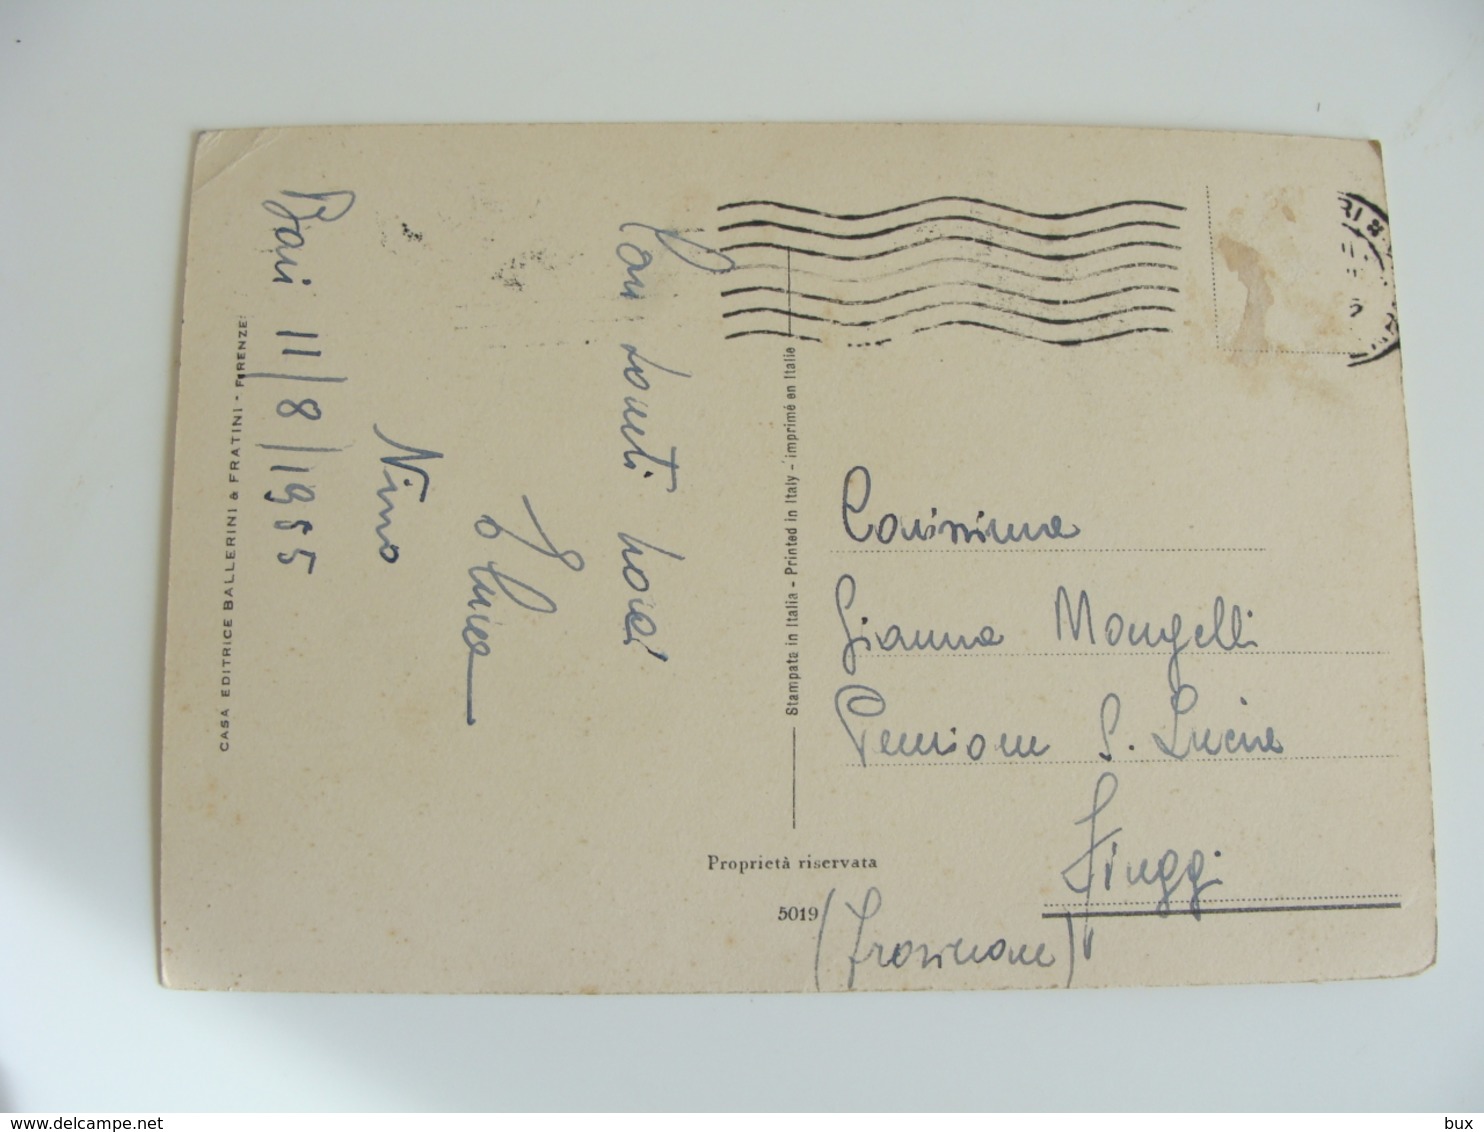 Bari 11/8/1955
Cari saluti baci
Nino
Elina
CASA EDITRICE BALLERINI & FRATINI - FIRENZE
Stampata in Italia - Printed in Italy - imprimé en Italie
Carissima
Gianna Mongelli
Pensione S. Lucia
Fiuggi
(Frosinone)
Proprietà riservata
5019
bux
www.delcampe.net